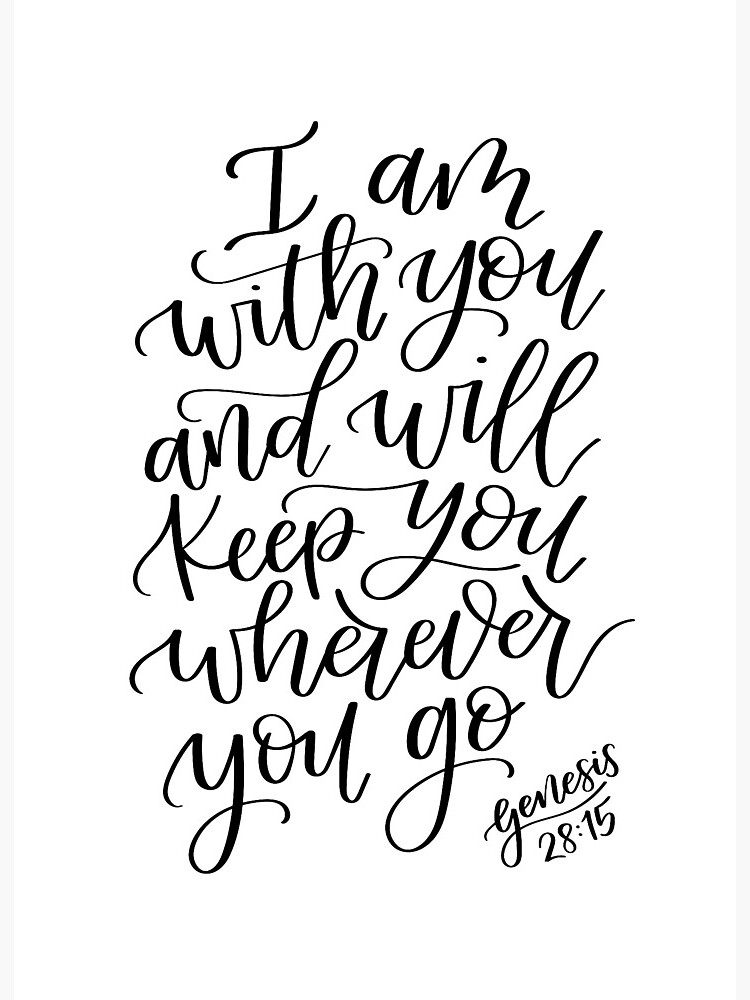 I am
with you
and will
keep you
wherever
you go
genesis
28:15